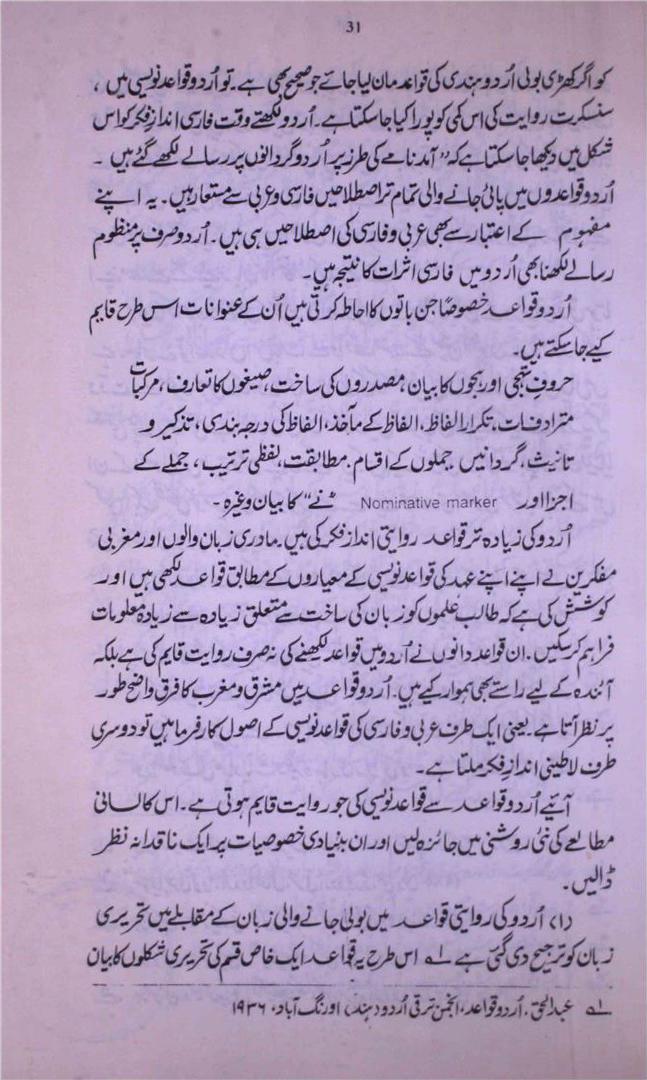 31
کو اگر کھڑی بولی اُردو ہندی کی قواعد مان لیا جائے جو صحیح بھی ہے۔ تو اُردو قواعد نویسی میں ،
سنسکرت روایت کی اس کمی کو پورا کیا جا سکتا ہے۔ اُردو لکھتے وقت فارسی اندازِ فکر کو اس
شکل میں دیکھا جا سکتا ہے کہ ”آمد نامے کی طرز پر اُردو گردانوں پر رسالے لکھے گئے ہیں ۔
اُردو قواعدوں میں پائی جانے والی تمام تر اصطلاحیں فارسی و عربی سے مستعار ہیں۔ یہ اپنے
مفہوم کے اعتبار سے بھی عربی و فارسی کی اصطلاحیں ہی ہیں۔ اُردو صرف پر منظوم
رسالے لکھنا بھی اُردو میں فارسی اثرات کا نتیجہ ہیں۔
اُردو قواعد خصوصاً جن باتوں کا احاطہ کرتی ہیں اُن کے عنوانات اس طرح قایم
کیے جا سکتے ہیں۔
حروفِ تہجی اور ہجوں کا بیان، مصدروں کی ساخت، صیغوں کا تعارف، مرکبات
مترادفات، تکرارِ الفاظ، الفاظ کے مآخذ، الفاظ کی درجہ بندی، تذکیر و
تانیث، گردانیں جملوں کے اقسام، مطابقت، لفظی ترتیب، جملے کے
اجزا اور Nominative marker ”نے“ کا بیان وغیرہ ۔
اُردو کی زیادہ تر قواعد روایتی اندازِ فکر کی ہیں۔ مادری زبان والوں اور مغربی
مفکرین نے اپنے اپنے عہد کی قواعد نویسی کے معیاروں کے مطابق قواعد لکھی ہیں اور
کوشش کی ہے کہ طالب علموں کو زبان کی ساخت سے متعلق زیادہ سے زیادہ معلومات
فراہم کر سکیں۔ ان قواعد دانوں نے اُردو میں قواعد لکھنے کی نہ صرف روایت قایم کی ہے بلکہ
آئندہ کے لیے راستے بھی ہموار کیے ہیں۔ اُردو قواعد میں مشرق و مغرب کا فرق واضح طور
پر نظر آتا ہے۔ یعنی ایک طرف عربی و فارسی کی قواعد نویسی کے اصول کارفرما ہیں تو دوسری
طرف لاطینی اندازِ فکر ملتا ہے۔
آئیے اُردو قواعد سے قواعد نویسی کی جو روایت قایم ہوتی ہے۔ اس کا لسانی
مطالعے کی نئی روشنی میں جائزہ لیں اور ان بنیادی خصوصیات پر ایک ناقدانہ نظر
ڈالیں۔
(۱) اُردو کی روایتی قواعد میں بولی جانے والی زبان کے مقابلے میں تحریری
زبان کو ترجیح دی گئی ہے ؎۱ اس طرح یہ قواعد ایک خاص قسم کی تحریری شکلوں کا بیان
؎۱ عبدالحق، اُردو قواعد، انجمن ترقی اُردو (ہند) اورنگ آباد، ۱۹۳۶